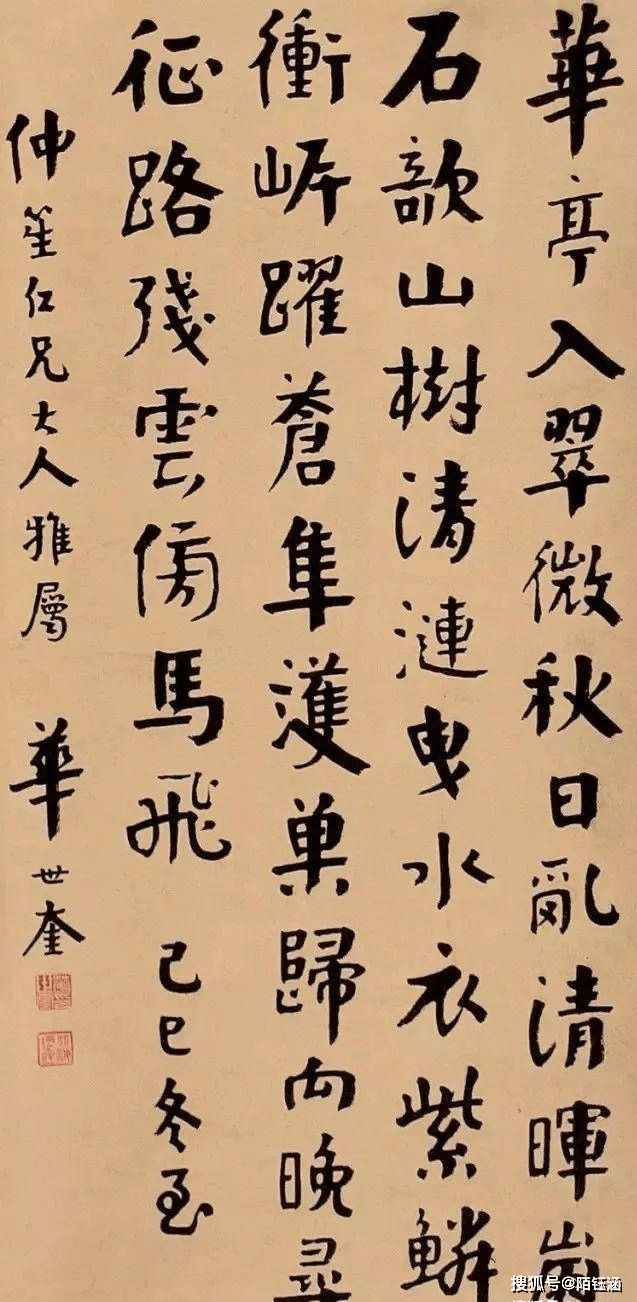 華亭入翠微秋日亂清暉崩
石欹山樹清漣曳水衣紫鱗
衝岸躍蒼隼護巢歸向晚尋
征路殘雲傍馬飛 己巳冬至
仲笙仁兄大人雅屬 華世奎
搜狐号@陌钰涵